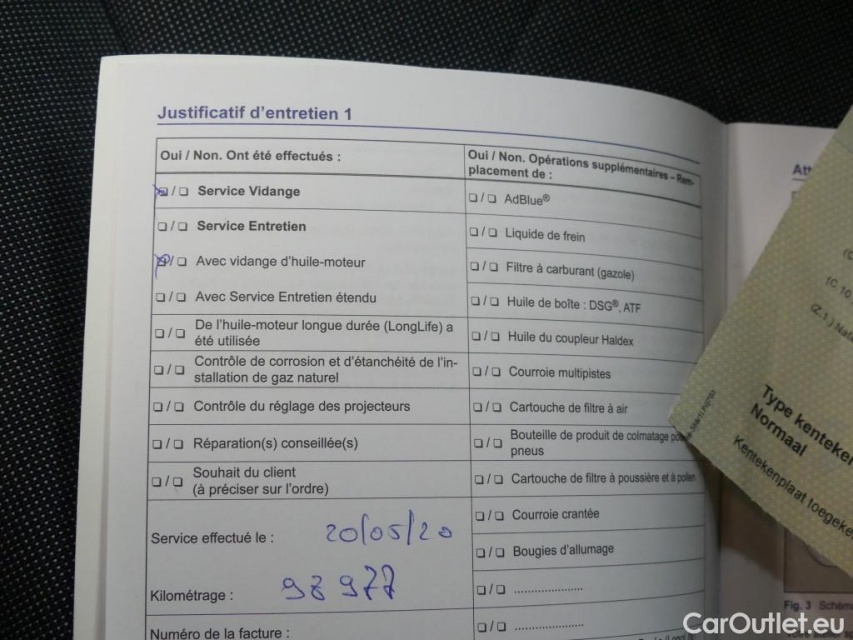 Justificatif d'entretien 1
Oui / Non. Ont été effectués :
❏/❏ Service Vidange
❏/❏ Service Entretien
❏/❏ Avec vidange d'huile-moteur
❏/❏ Avec Service Entretien étendu
❏/❏ De l'huile-moteur longue durée (LongLife) a
été utilisée
❏/❏ Contrôle de corrosion et d'étanchéité de l'in-
stallation de gaz naturel
❏/❏ Contrôle du réglage des projecteurs
❏/❏ Réparation(s) conseillée(s)
❏/❏ Souhait du client
(à préciser sur l'ordre)
Service effectué le : 20/05/20
Kilométrage : 98 977
Numéro de la facture :
Oui / Non. Opérations supplémentaires – Rem-
placement de :
❏/❏ AdBlue®
❏/❏ Liquide de frein
❏/❏ Filtre à carburant (gazole)
❏/❏ Huile de boîte : DSG®, ATF
❏/❏ Huile du coupleur Haldex
❏/❏ Courroie multipistes
❏/❏ Cartouche de filtre à air
❏/❏ Bouteille de produit de colmatage
pneus
❏/❏ Cartouche de filtre à poussière et à pollen
❏/❏ Courroie crantée
❏/❏ Bougies d'allumage
❏/❏ ....................
❏/❏ ....................
Att
(C
(C 10.
(Z.1.)
Type kenteken
Normaal
Kentekenplaat toegeke
Fig. 3 Schém
CarOutlet.eu